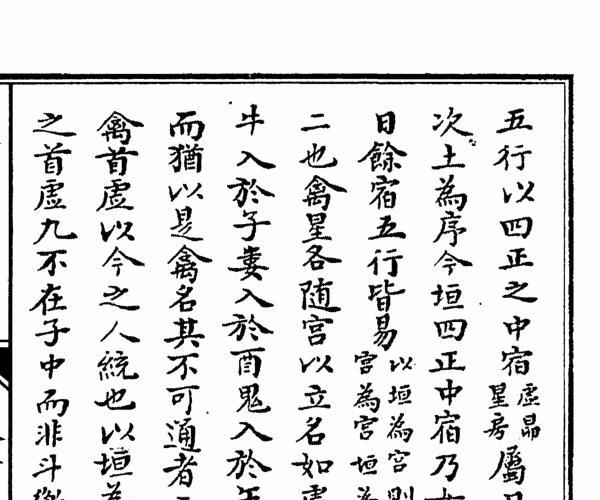 五行以四正之中宿虛昴星房屬
次土為序今垣四正中宿乃
日餘宿五行皆易以垣為宮則宮為宮垣為
二也禽星各随宮以立名如虛
牛入於子婁入於酉鬼入於午
而猶以是禽名其不可通者
禽首虛以今之人統也以垣為
之首虛九不在子中而非斗